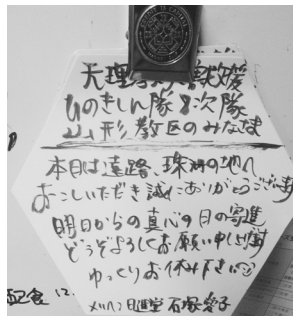 天理教災害救援
ひのきしん隊2次隊
山形教区のみなさま
本日は遠路、珠洲の地へ
おこしいただき誠にありがとうございます
明日からの真心の日の寄進
どうぞよろしくお願い申し上げます
ゆっくりお休み下さい
配食 12.
日進堂 石塚愛子